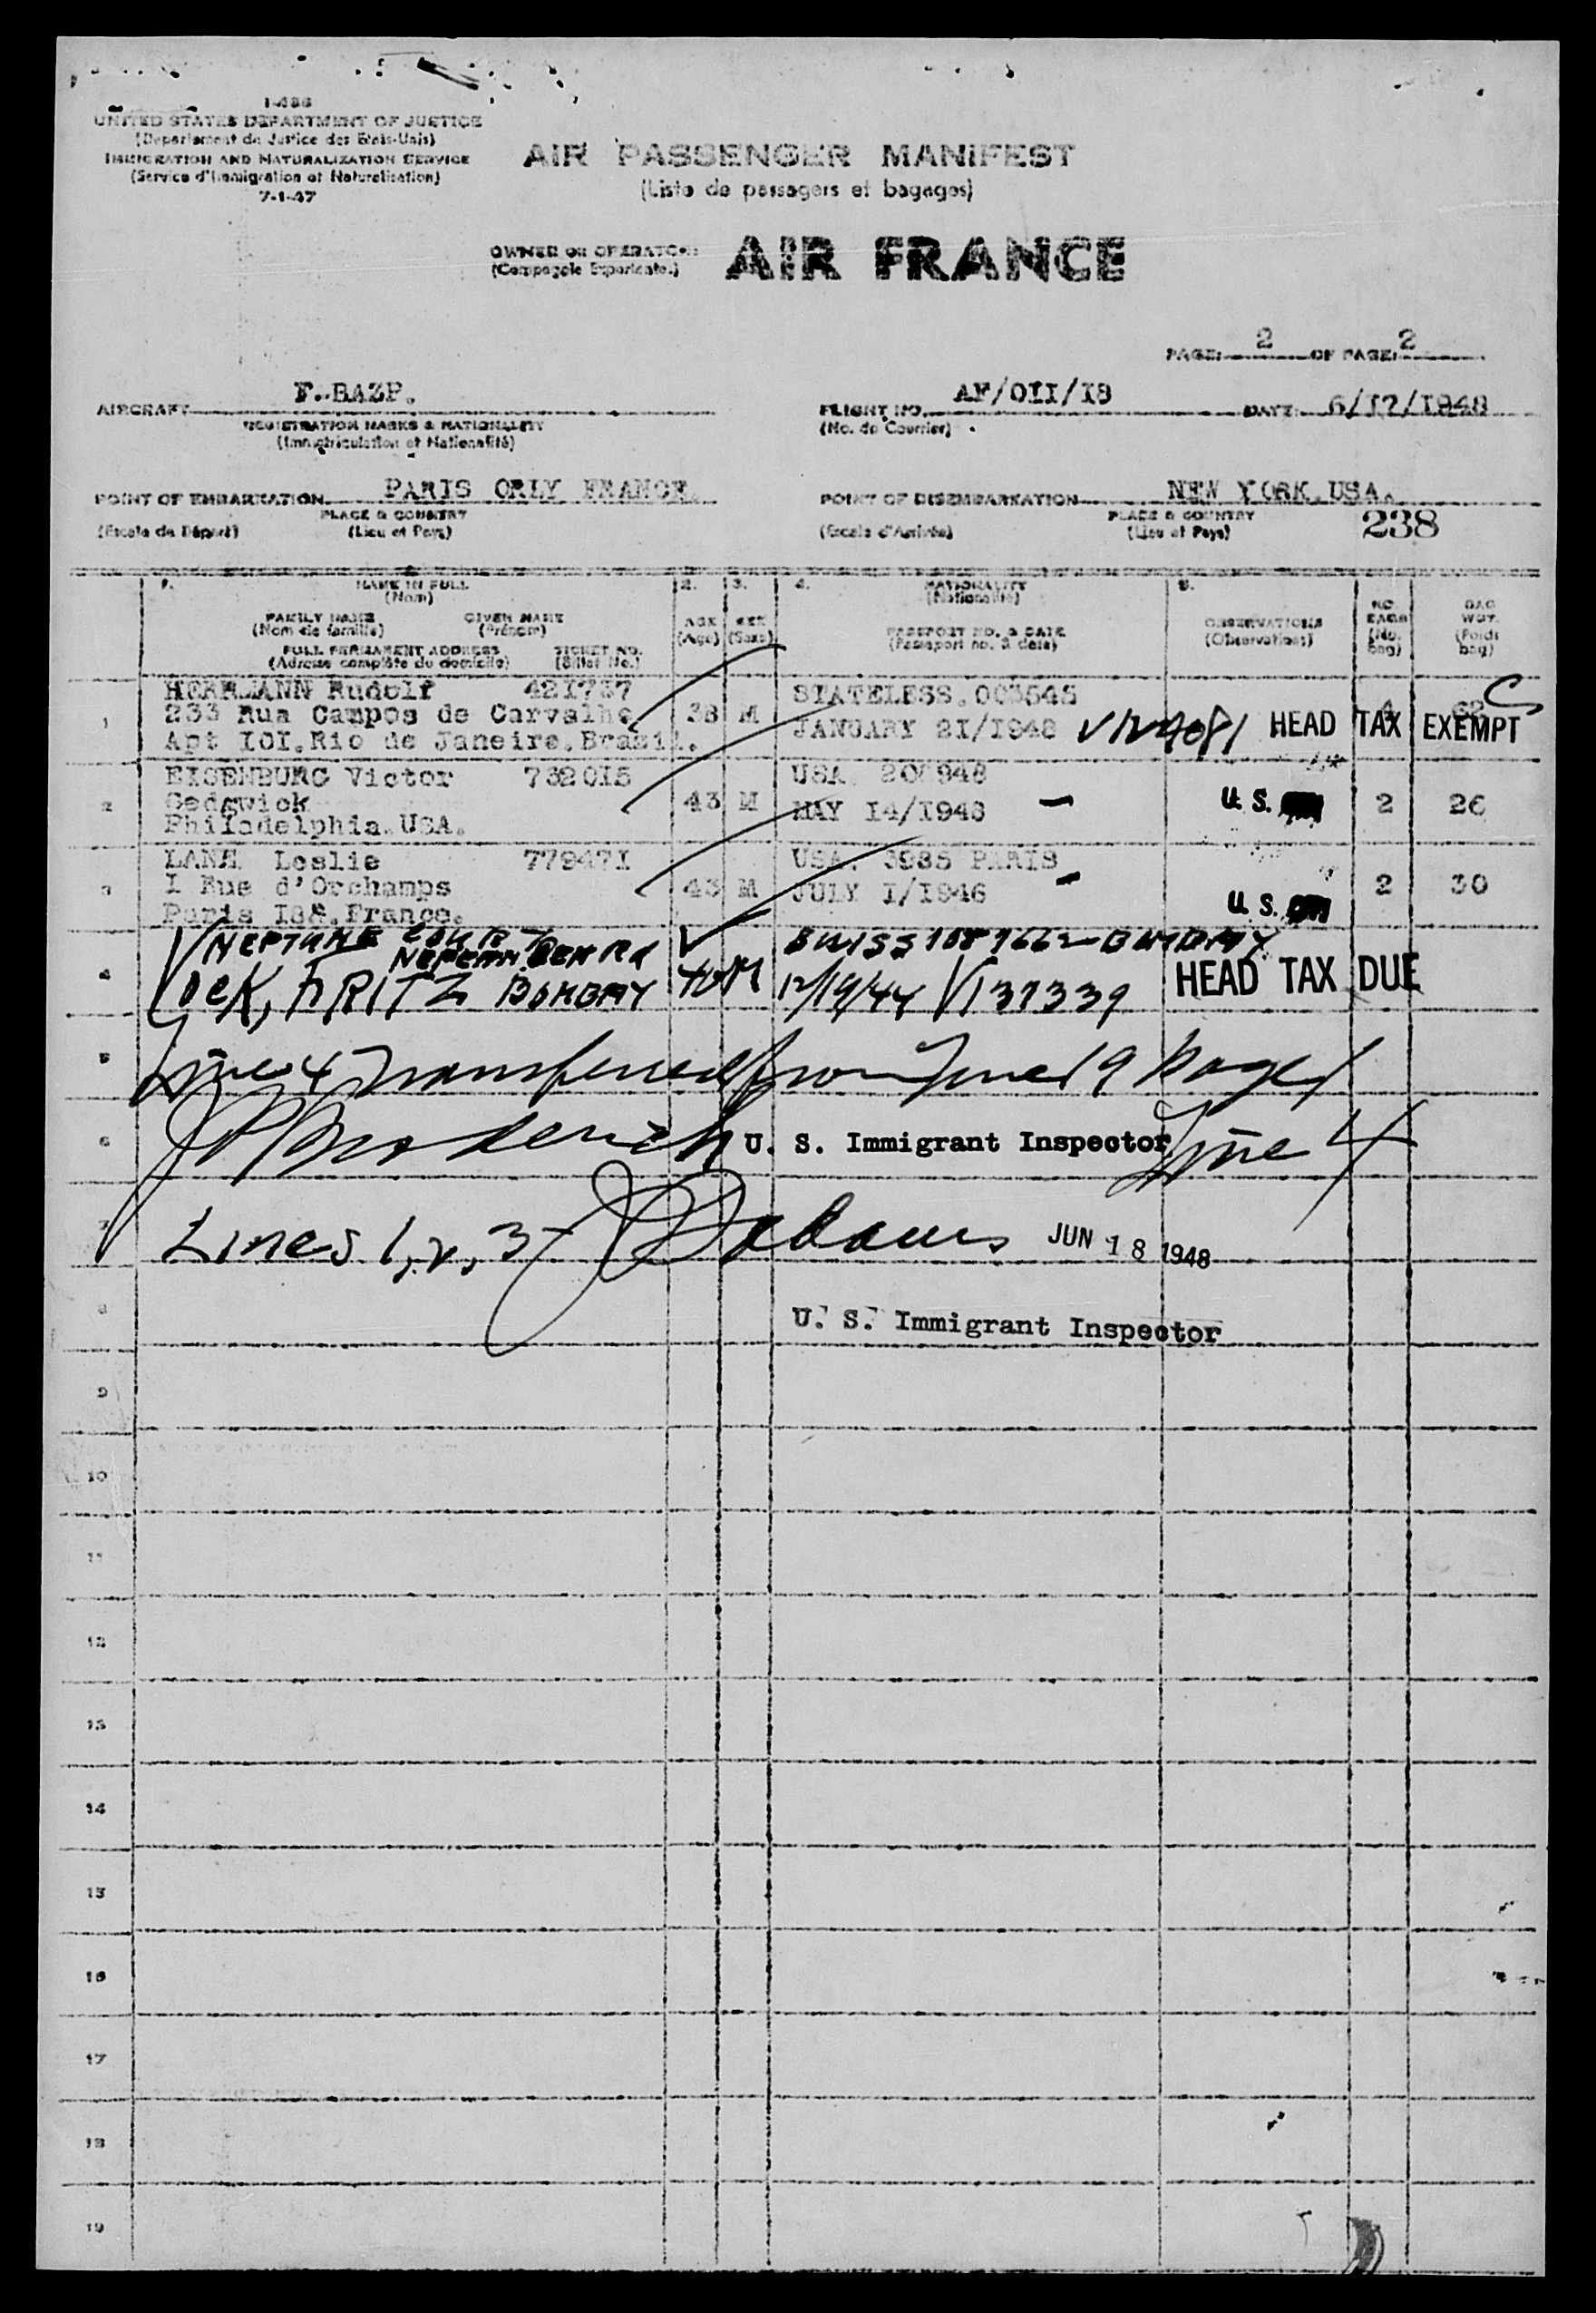 I-466
UNITED STATES DEPARTMENT OF JUSTICE
(Département de Justice des Etats-Unis)
IMMIGRATION AND NATURALIZATION SERVICE
(Service d'Immigration et Naturalisation)
7-1-47
AIR PASSENGER MANIFEST
(Liste de passagers et bagages)
OWNER OR OPERATOR
AIR FRANCE
PAGE: 2 OF PAGE: 2
AIRCRAFT F.BAZP.
REGISTRATION MARKS & NATIONALITY
(Immatriculation et Nationalité)
FLIGHT NO. AF/OII/I8
(No. de Courrier)
DATE: 6/I7/I948
POINT OF EMBARKATION PARIS ORLY FRANCE.
PLACE & COUNTRY
(Escale de Départ) (Lieu et Pays)
POINT OF DISEMBARKATION NEW YORK.USA.
PLACE & COUNTRY
(Escale d'Arrivée) (Lieu et Pays)
238
1. NAME IN FULL
(Nom)
FAMILY NAME GIVEN NAME
(Nom de famille) (Prénom)
FULL PERMANENT ADDRESS TICKET NO.
(Adresse complète du domicile) (Billet No.)
2. AGE
(Age)
3. SEX
(Sexe)
4. NATIONALITY
(Nationalité)
PASSPORT NO. & DATE
(Passeport no. & date)
5. OBSERVATIONS
(Observations)
NO. BAGS
(No. bag)
BAG WGT.
(Poids bag)
1 HERRMANN Rudolf 421737 38 M STATELESS.003545
233 Rua Campos de Carvalho JANUARY 21/1948 HEAD TAX EXEMPT
Apt IOI.Rio de Janeiro.Brazil.
2 EISENBURG Victor 732015 43 M USA 948
Sedgwick MAY I4/I948 U.S. 2 26
Philadelphia.USA.
3 LANE Leslie 779471 43 M USA. 3985 PARIS
I Rue d'Orchamps JULY I/I946 U.S. 2 30
Paris I8è.France.
NEPTUNE COURT
NEPEAN SEA Rd
4 FRITZ BOMBAY 40 M SWISS BOMBAY
12/19/44 V137339 HEAD TAX DUE
5 Line 4 Transferred from Line 19 page 1
6 U. S. Immigrant Inspector Line 4
7 Lines 1, 2, 3 JUN 18 1948
8 U. S. Immigrant Inspector
9
10
11
12
13
14
15
16
17
18
19